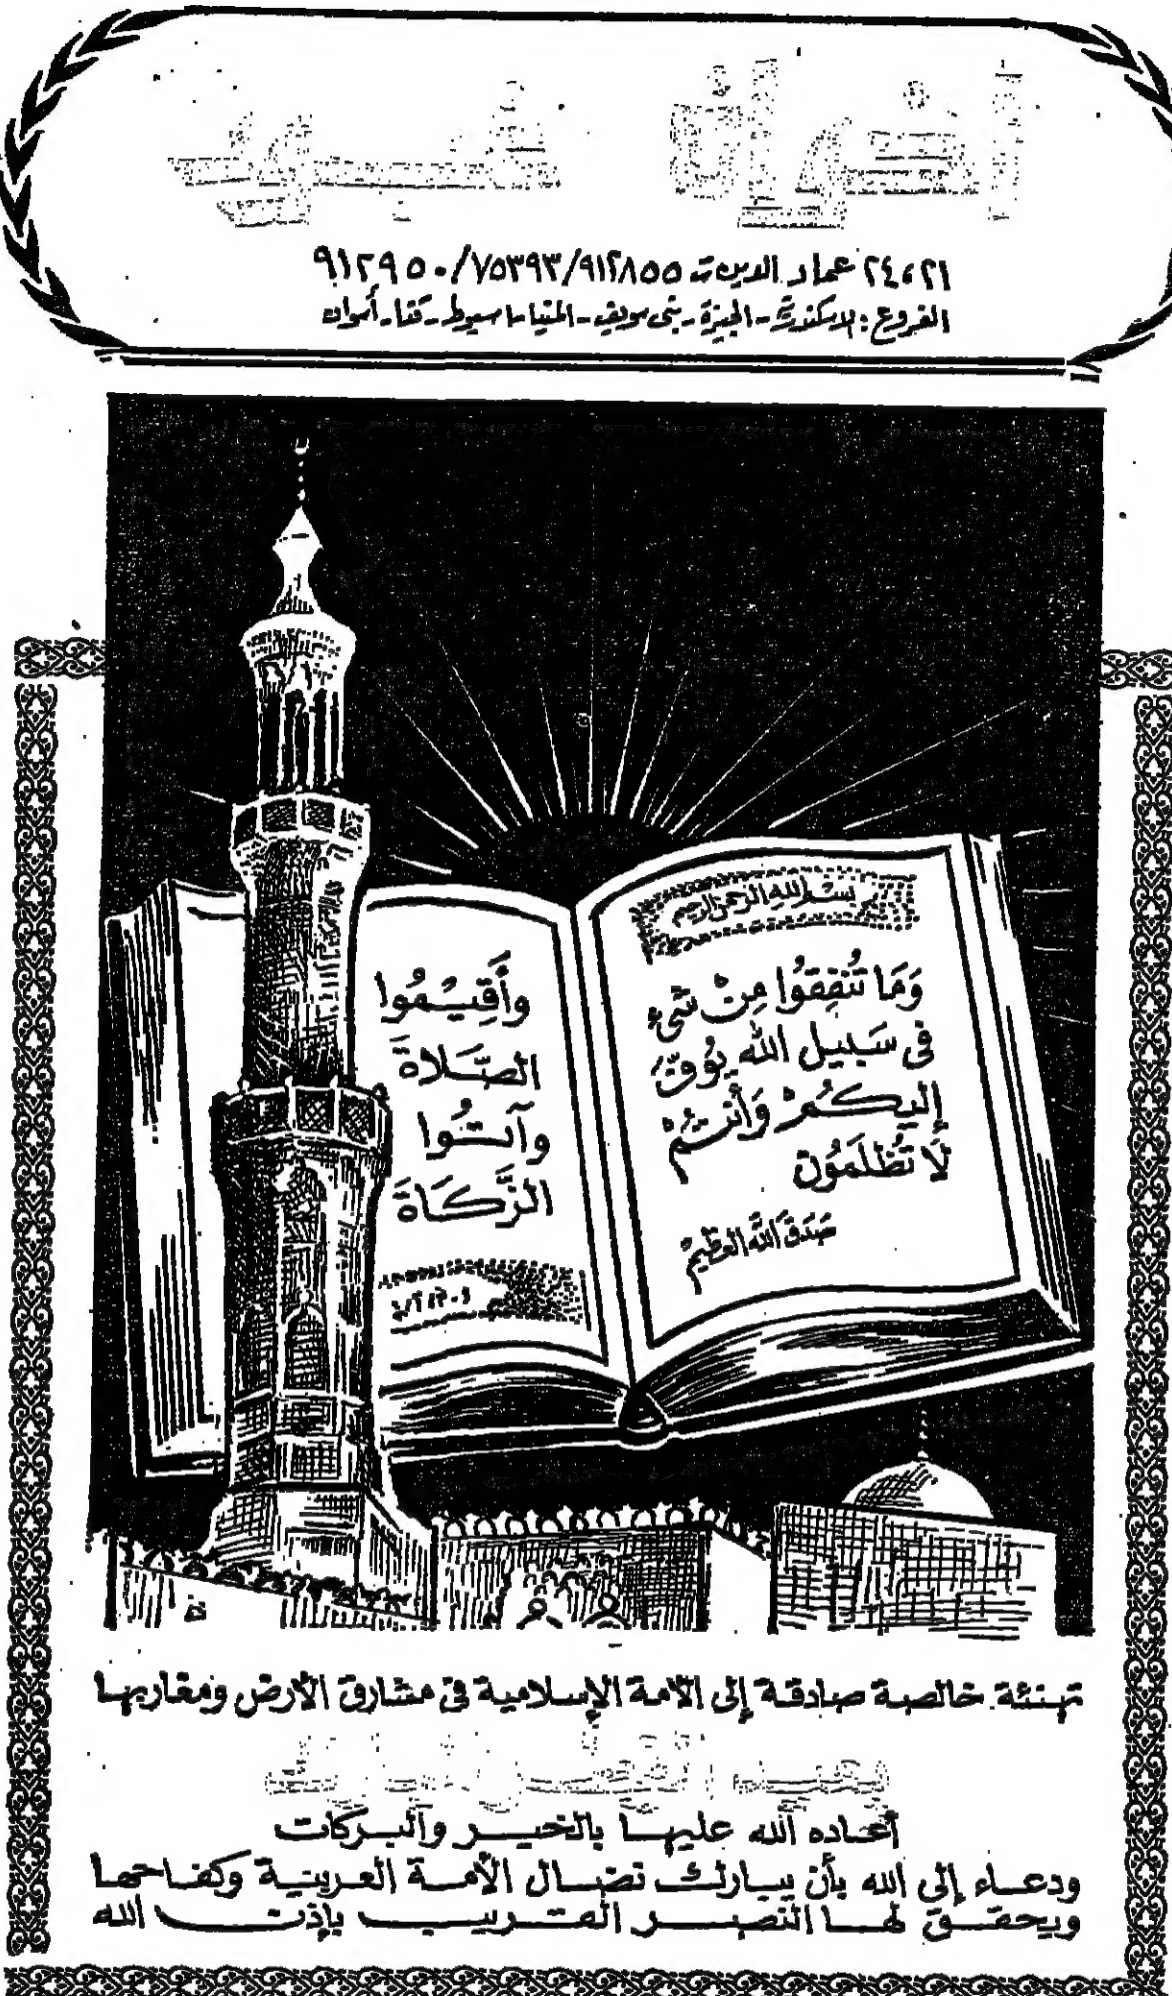 أفران
٢٤،٢١ عماد الدين ت ٩١٢٨٥٥ /٧٥٣٩٣/ ٩١٢٩٥٠
الفروع : الاسكندرية - الجيزة - بنى سويف - المنيا - اسيوط - قنا - أسوان
بسم الله الرحمن الرحيم
وَمَا تُنْفِقُوا مِنْ شَىْءٍ
فى سَبِيل الله يُوَفَّ
إليكُمْ وَأَنتُمْ
لَا تُظْلَمُون
صَدَقَ اللهُ العَظِيمْ
وأَقِيمُوا
الصَّلاةَ
وآتُوا
الزَّكَاةَ
تهنئة خالصة صادقة إلى الأمة الإسلامية فى مشارق الأرض ومغاربها
بعيد الفطر المبارك
أعاده الله عليها بالخير والبركات
ودعاء إلى الله بأن يبارك نضال الأمة العربية وكفاحها
ويحقق لها النصر القريب بإذن الله